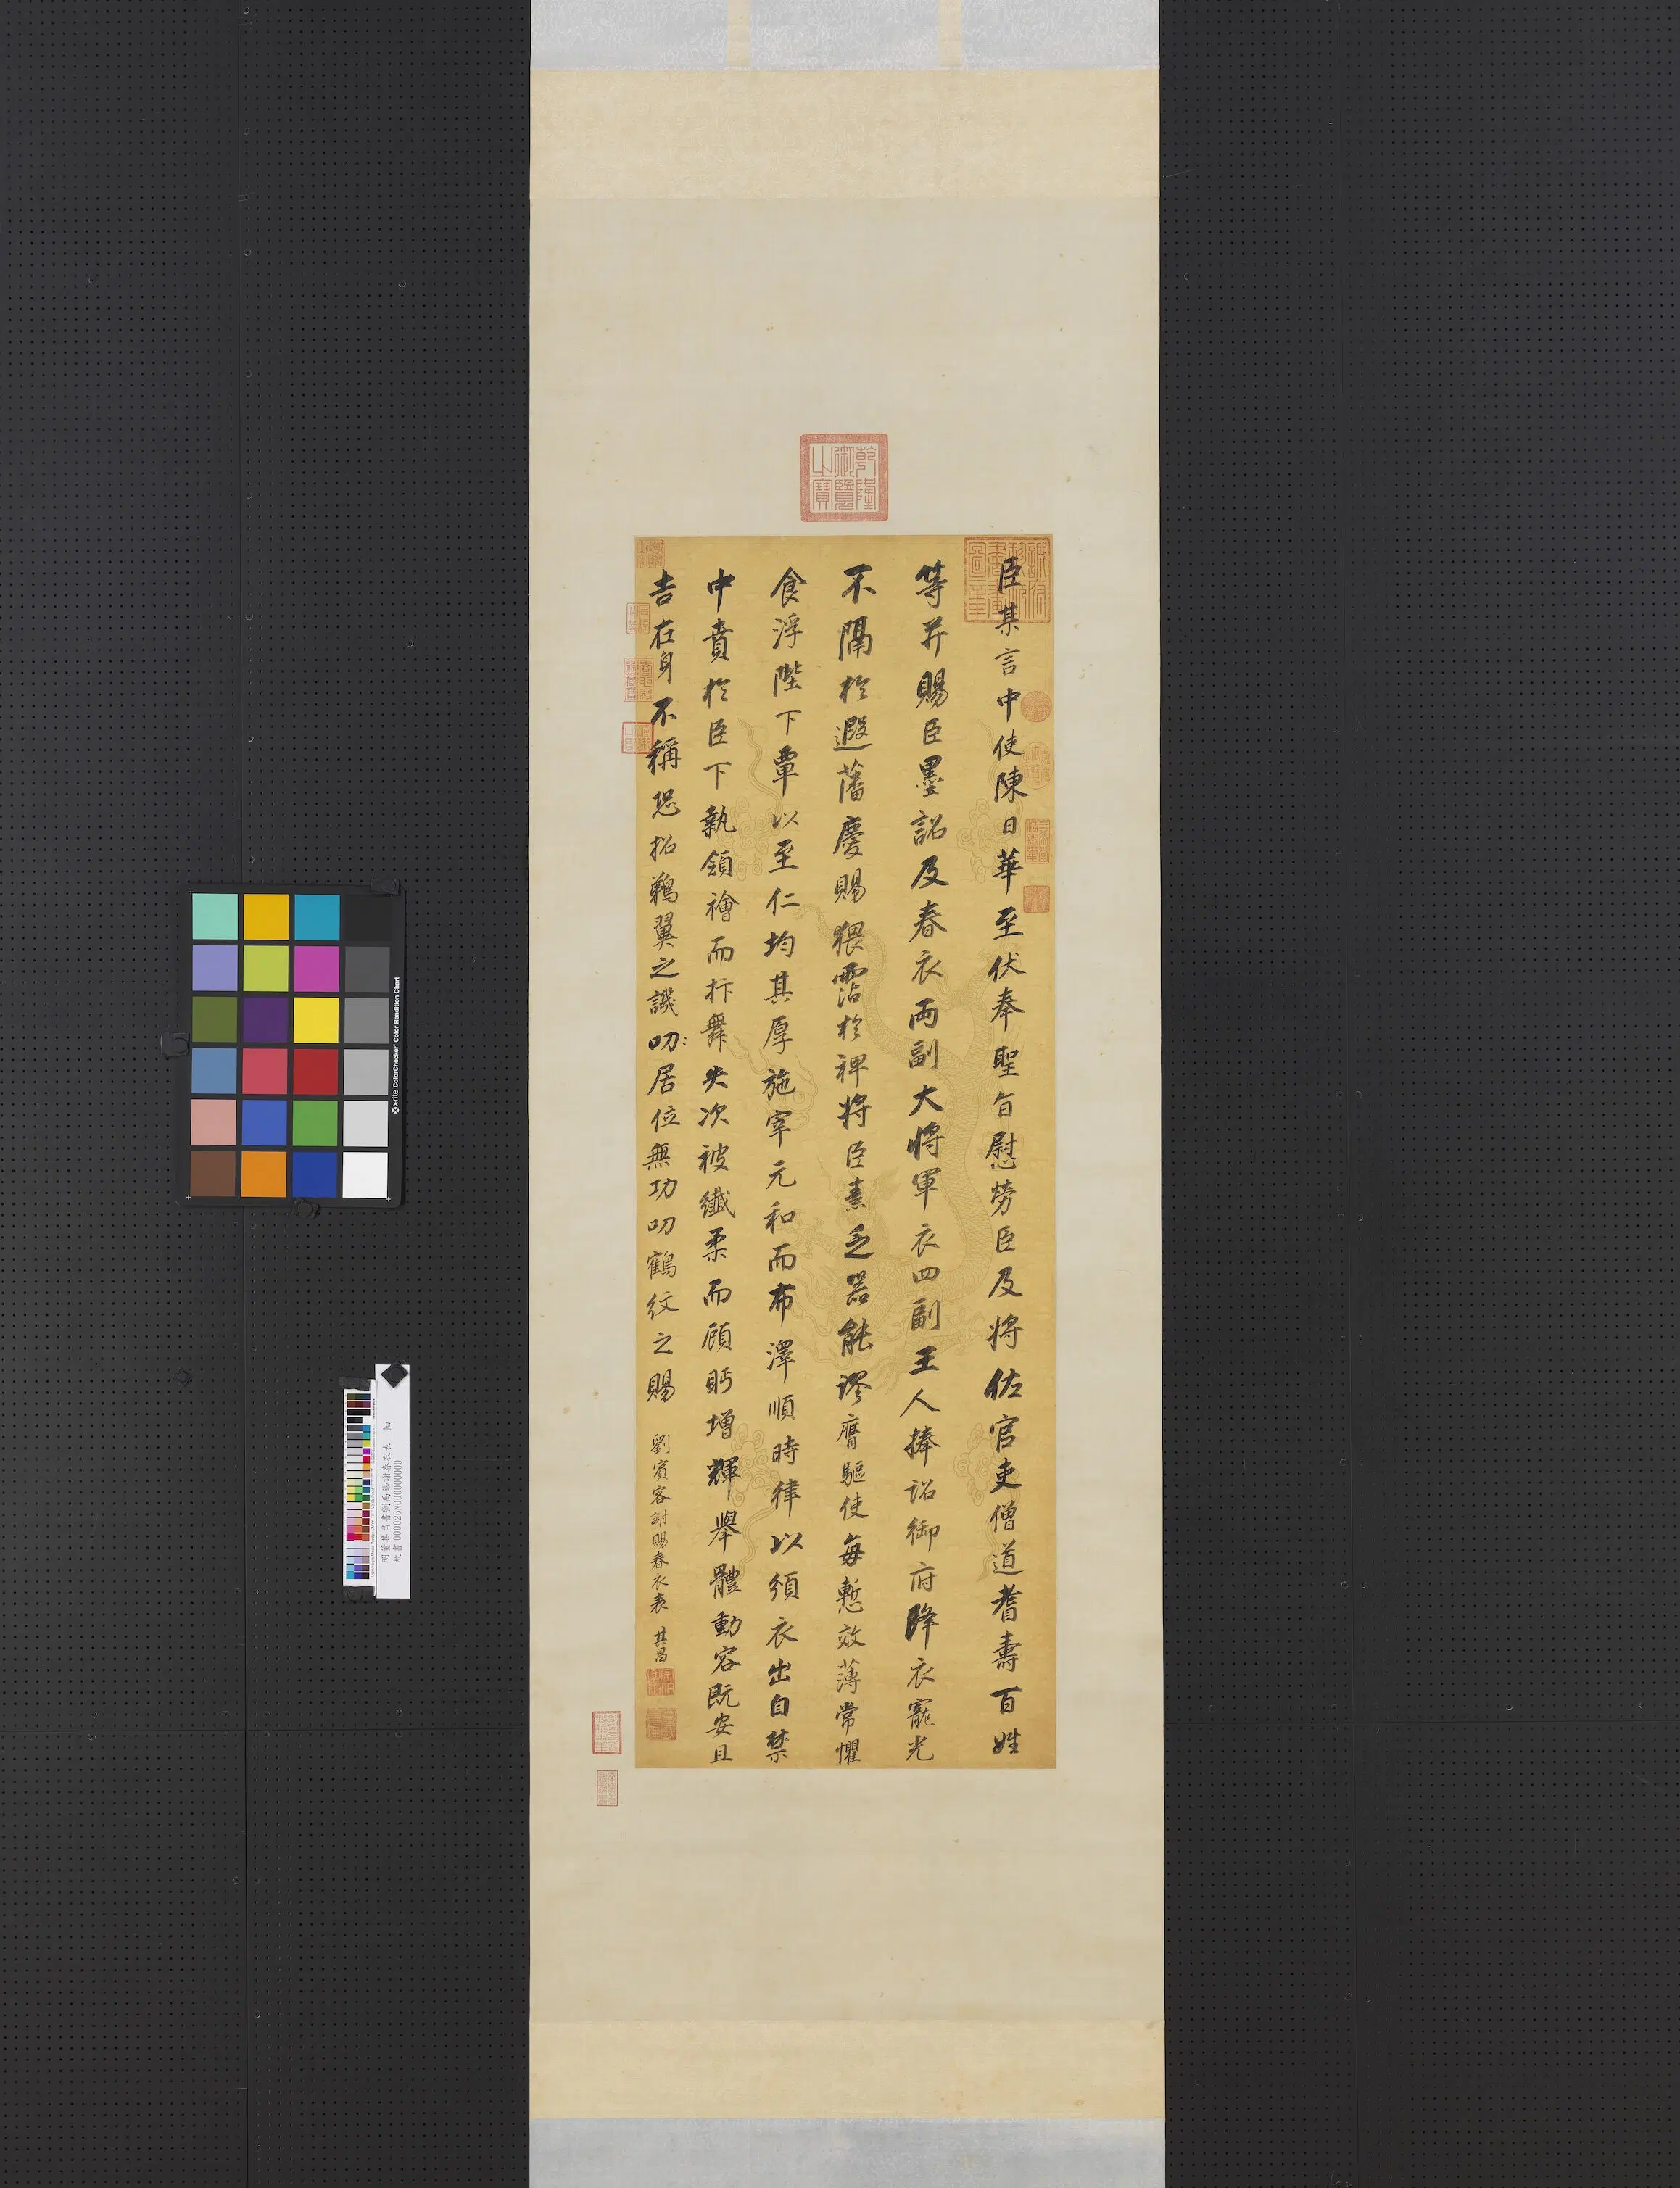 臣某言中使陳日華至伏奉聖旨慰勞臣及將佐官吏僧道耆壽百姓
等并賜臣墨詔及春衣兩副大將軍衣四副王人捧詔御府降衣寵光
不隔於遐藩慶賜猥霑於裨將臣素乏器能謬膺驅使每慙效薄常懼
食浮陛下覃以至仁均其厚施宰元和而布澤順時律以頒衣出自禁
中賁於臣下執領襘而抃舞失次被纖柔而顧眄增輝舉體動容既安且
吉在身不稱恐招鵜翼之譏叨居位無功叨鶴紋之賜
劉賓客謝賜春衣表 其昌
乾隆御覽之寶
明董其昌書劉禹錫謝春衣表 軸
故書000026N000000000
x-rite ColorChecker Color Rendition Chart